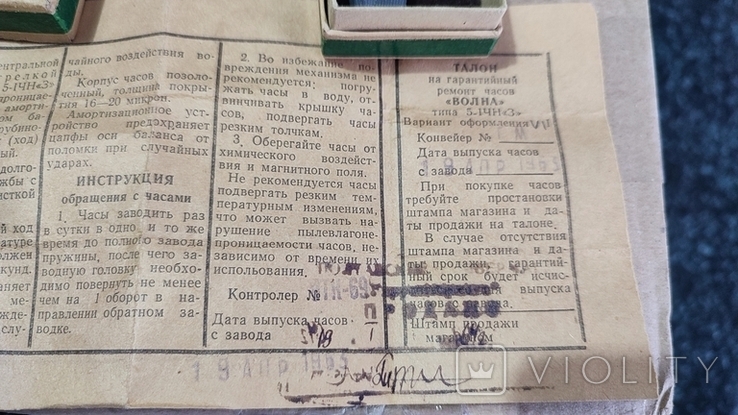 ентральной
трелкой
5-1ЧН«З»
роницае-
аморти-
ом ба-
рубино-
(ход)
ый.
долго-
жбы с
исткой
й ход
ратуре
лжен
екунд.
няет
о в
ежде-
слу-
чайного воздействия во-
ды.
Корпус часов позоло-
ченный, толщина покры-
тия 16—20 микрон.
Амортизационное уст-
ройство предохраняет
цапфы оси баланса от
поломки при случайных
ударах.
ИНСТРУКЦИЯ
обращения с часами
1. Часы заводить раз
в сутки в одно и то же
время до полного завода
пружины, после чего за-
водную головку необхо-
димо повернуть не менее
чем на 1 оборот в на-
правлении обратном за-
водке.
2. Во избежание по-
вреждения механизма не
рекомендуется: погру-
жать часы в воду, от-
винчивать крышку ча-
сов, подвергать часы
резким толчкам.
3. Оберегайте часы от
химического воздейст-
вия и магнитного поля.
Не рекомендуется часы
подвергать резким тем-
пературным изменениям,
что может вызвать на-
рушение пылевлагоне-
проницаемости часов, не-
зависимо от времени их
использования.
Контролер №
ТК-69
Дата выпуска часов
с завода
19 АПР 1963
ТАЛОН
на гарантийный
ремонт часов
«ВОЛНА»
типа 5-1ЧН«З»
Вариант оформления VII
Конвейер №
Дата выпуска часов
с завода
19 АПР 1963
При покупке часов
требуйте простановки
штампа магазина и да-
ты продажи на талоне.
В случае отсутствия
штампа магазина и да-
ты продажи, гарантий-
ный срок будет исчис-
выпуска
часов с завода.
ПРОДАНО
Штамп продажи
магазином
VIOLITY